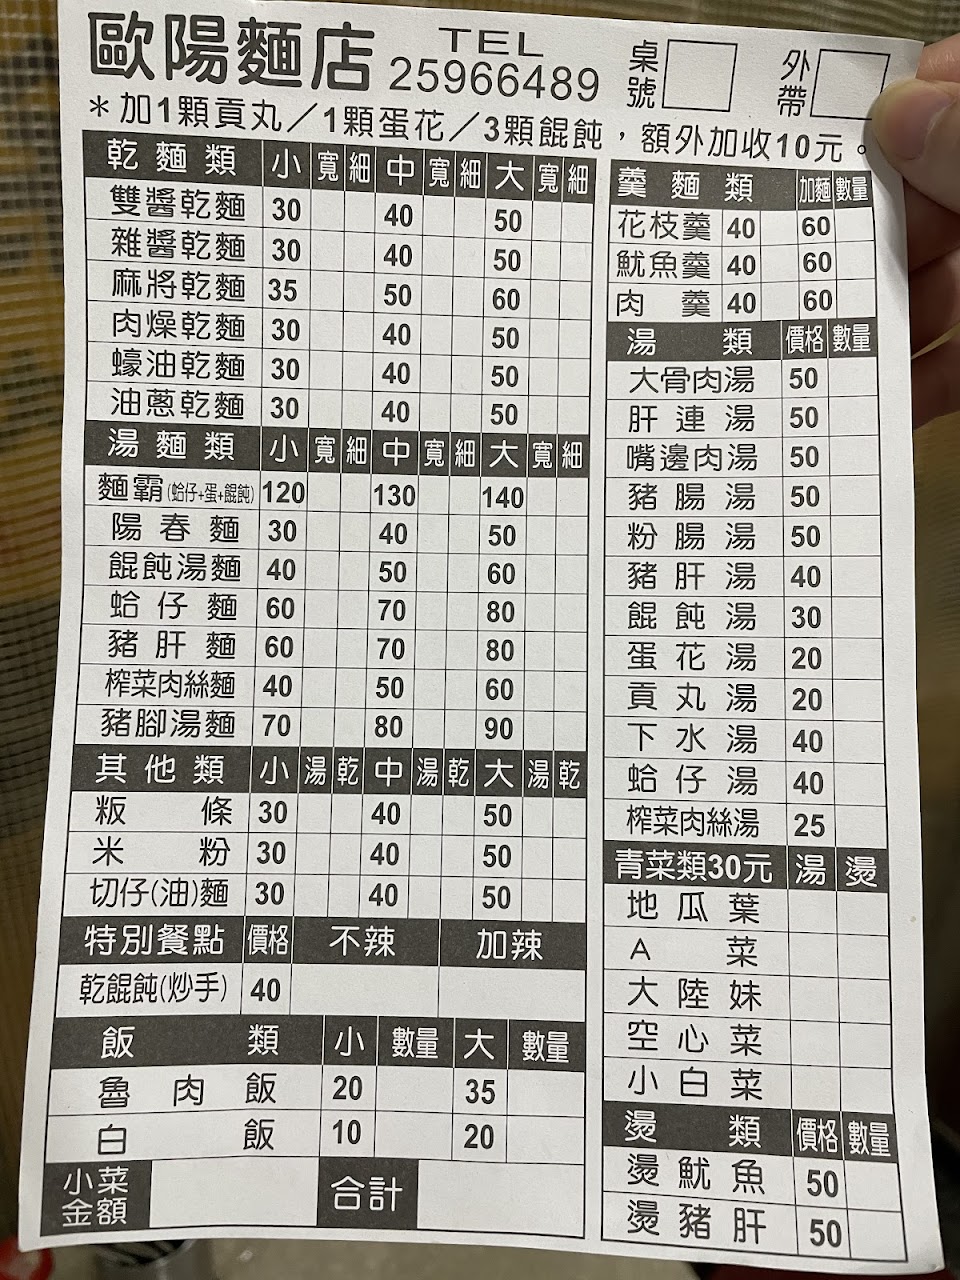 歐陽麵店 TEL 25966489 桌號 外帶
＊加1顆貢丸／1顆蛋花／3顆餛飩，額外加收10元。
乾麵類 小 寬 細 中 寬 細 大 寬 細
雙醬乾麵 30 40 50
雜醬乾麵 30 40 50
麻將乾麵 35 50 60
肉燥乾麵 30 40 50
蠔油乾麵 30 40 50
油蔥乾麵 30 40 50
湯麵類 小 寬 細 中 寬 細 大 寬 細
麵霸(蛤仔+蛋+餛飩) 120 130 140
陽春麵 30 40 50
餛飩湯麵 40 50 60
蛤仔麵 60 70 80
豬肝麵 60 70 80
榨菜肉絲麵 40 50 60
豬腳湯麵 70 80 90
其他類 小 湯 乾 中 湯 乾 大 湯 乾
粄條 30 40 50
米粉 30 40 50
切仔(油)麵 30 40 50
特別餐點 價格 不辣 加辣
乾餛飩(炒手) 40
飯類 小 數量 大 數量
魯肉飯 20 35
白飯 10 20
小菜金額 合計
羹麵類 加麵 數量
花枝羹 40 60
魷魚羹 40 60
肉羹 40 60
湯類 價格 數量
大骨肉湯 50
肝連湯 50
嘴邊肉湯 50
豬腸湯 50
粉腸湯 50
豬肝湯 40
餛飩湯 30
蛋花湯 20
貢丸湯 20
下水湯 40
蛤仔湯 40
榨菜肉絲湯 25
青菜類30元 湯 燙
地瓜葉
A菜
大陸妹
空心菜
小白菜
燙類 價格 數量
燙魷魚 50
燙豬肝 50